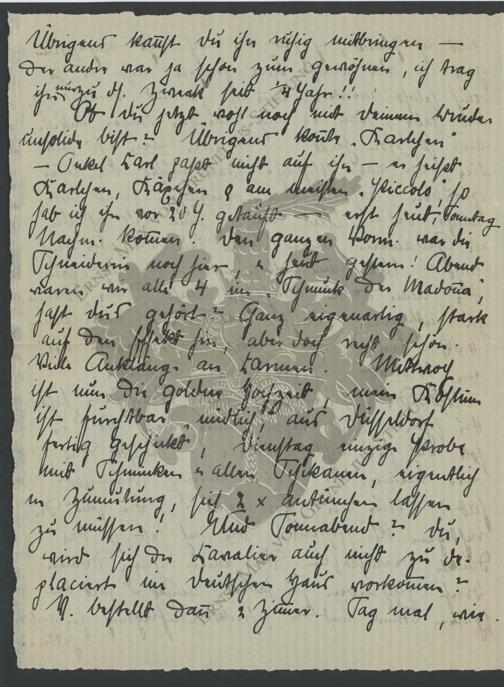 Übrigens kannst du ihn ruhig mitbringen —
der andre war ja schon zum gewöhnen, ich trag
ihn nur zu ds. Zweck seit ¼ Jahr!!
Ob du jetzt wohl noch mit deinem Bruder
unsolide bist? Übrigens konnte „Karlchen"
— Onkel Karl paßt nicht auf ihn — er heißt
Karlchen, Käppchen & am meisten „Piccolo", so
hab ich ihn vor 20 J. getauft — erst heut, Sonntag
Nachm. kommen. Den ganzen Vorm. war die
Schneiderin noch hier, & heut gestern! Abend
waren wir alle 4 im „Schmuck der Madonna",
hast dus gehört? Ganz eigenartig, stark
auf den Effekt hin, aber doch recht schön.
Viele Anklänge an Carmen. Mittwoch
ist nun die goldne Hochzeit, mein Kostüm
ist furchtbar niedlich aus Düsseldorf
fertig geschickt, Dienstag einzige Probe
mit Schminken & allen Schikanen, eigentlich
ne Zumutung, sich 2 x antünchen lassen
zu müssen! Und Sonnabend? Du,
wird sich der Cavalier auch nicht zu de-
placiert im Deutschen Haus vorkommen?
V. bestellt dann 2 Zimmer. Sag mal, wie